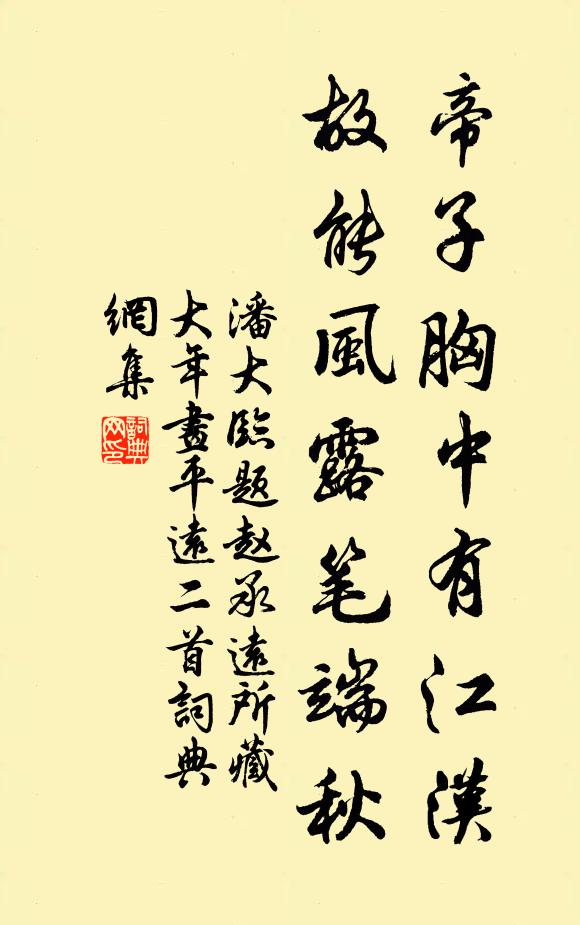 帝子胸中有江漢
故能風露笔端秋
潘大臨題赵承遠所藏
大年畫平遠二首詞典
網集
詞典
网印